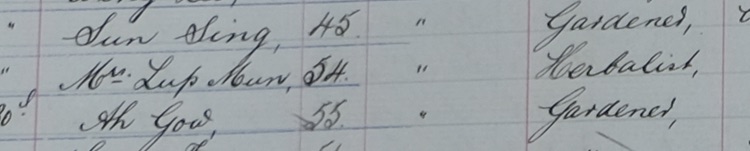 " Sun Sing, 45. " Gardener,
" Mrs. Lup Mun, 54. " Herbalist,
Ah Gow, 55. " Gardener,